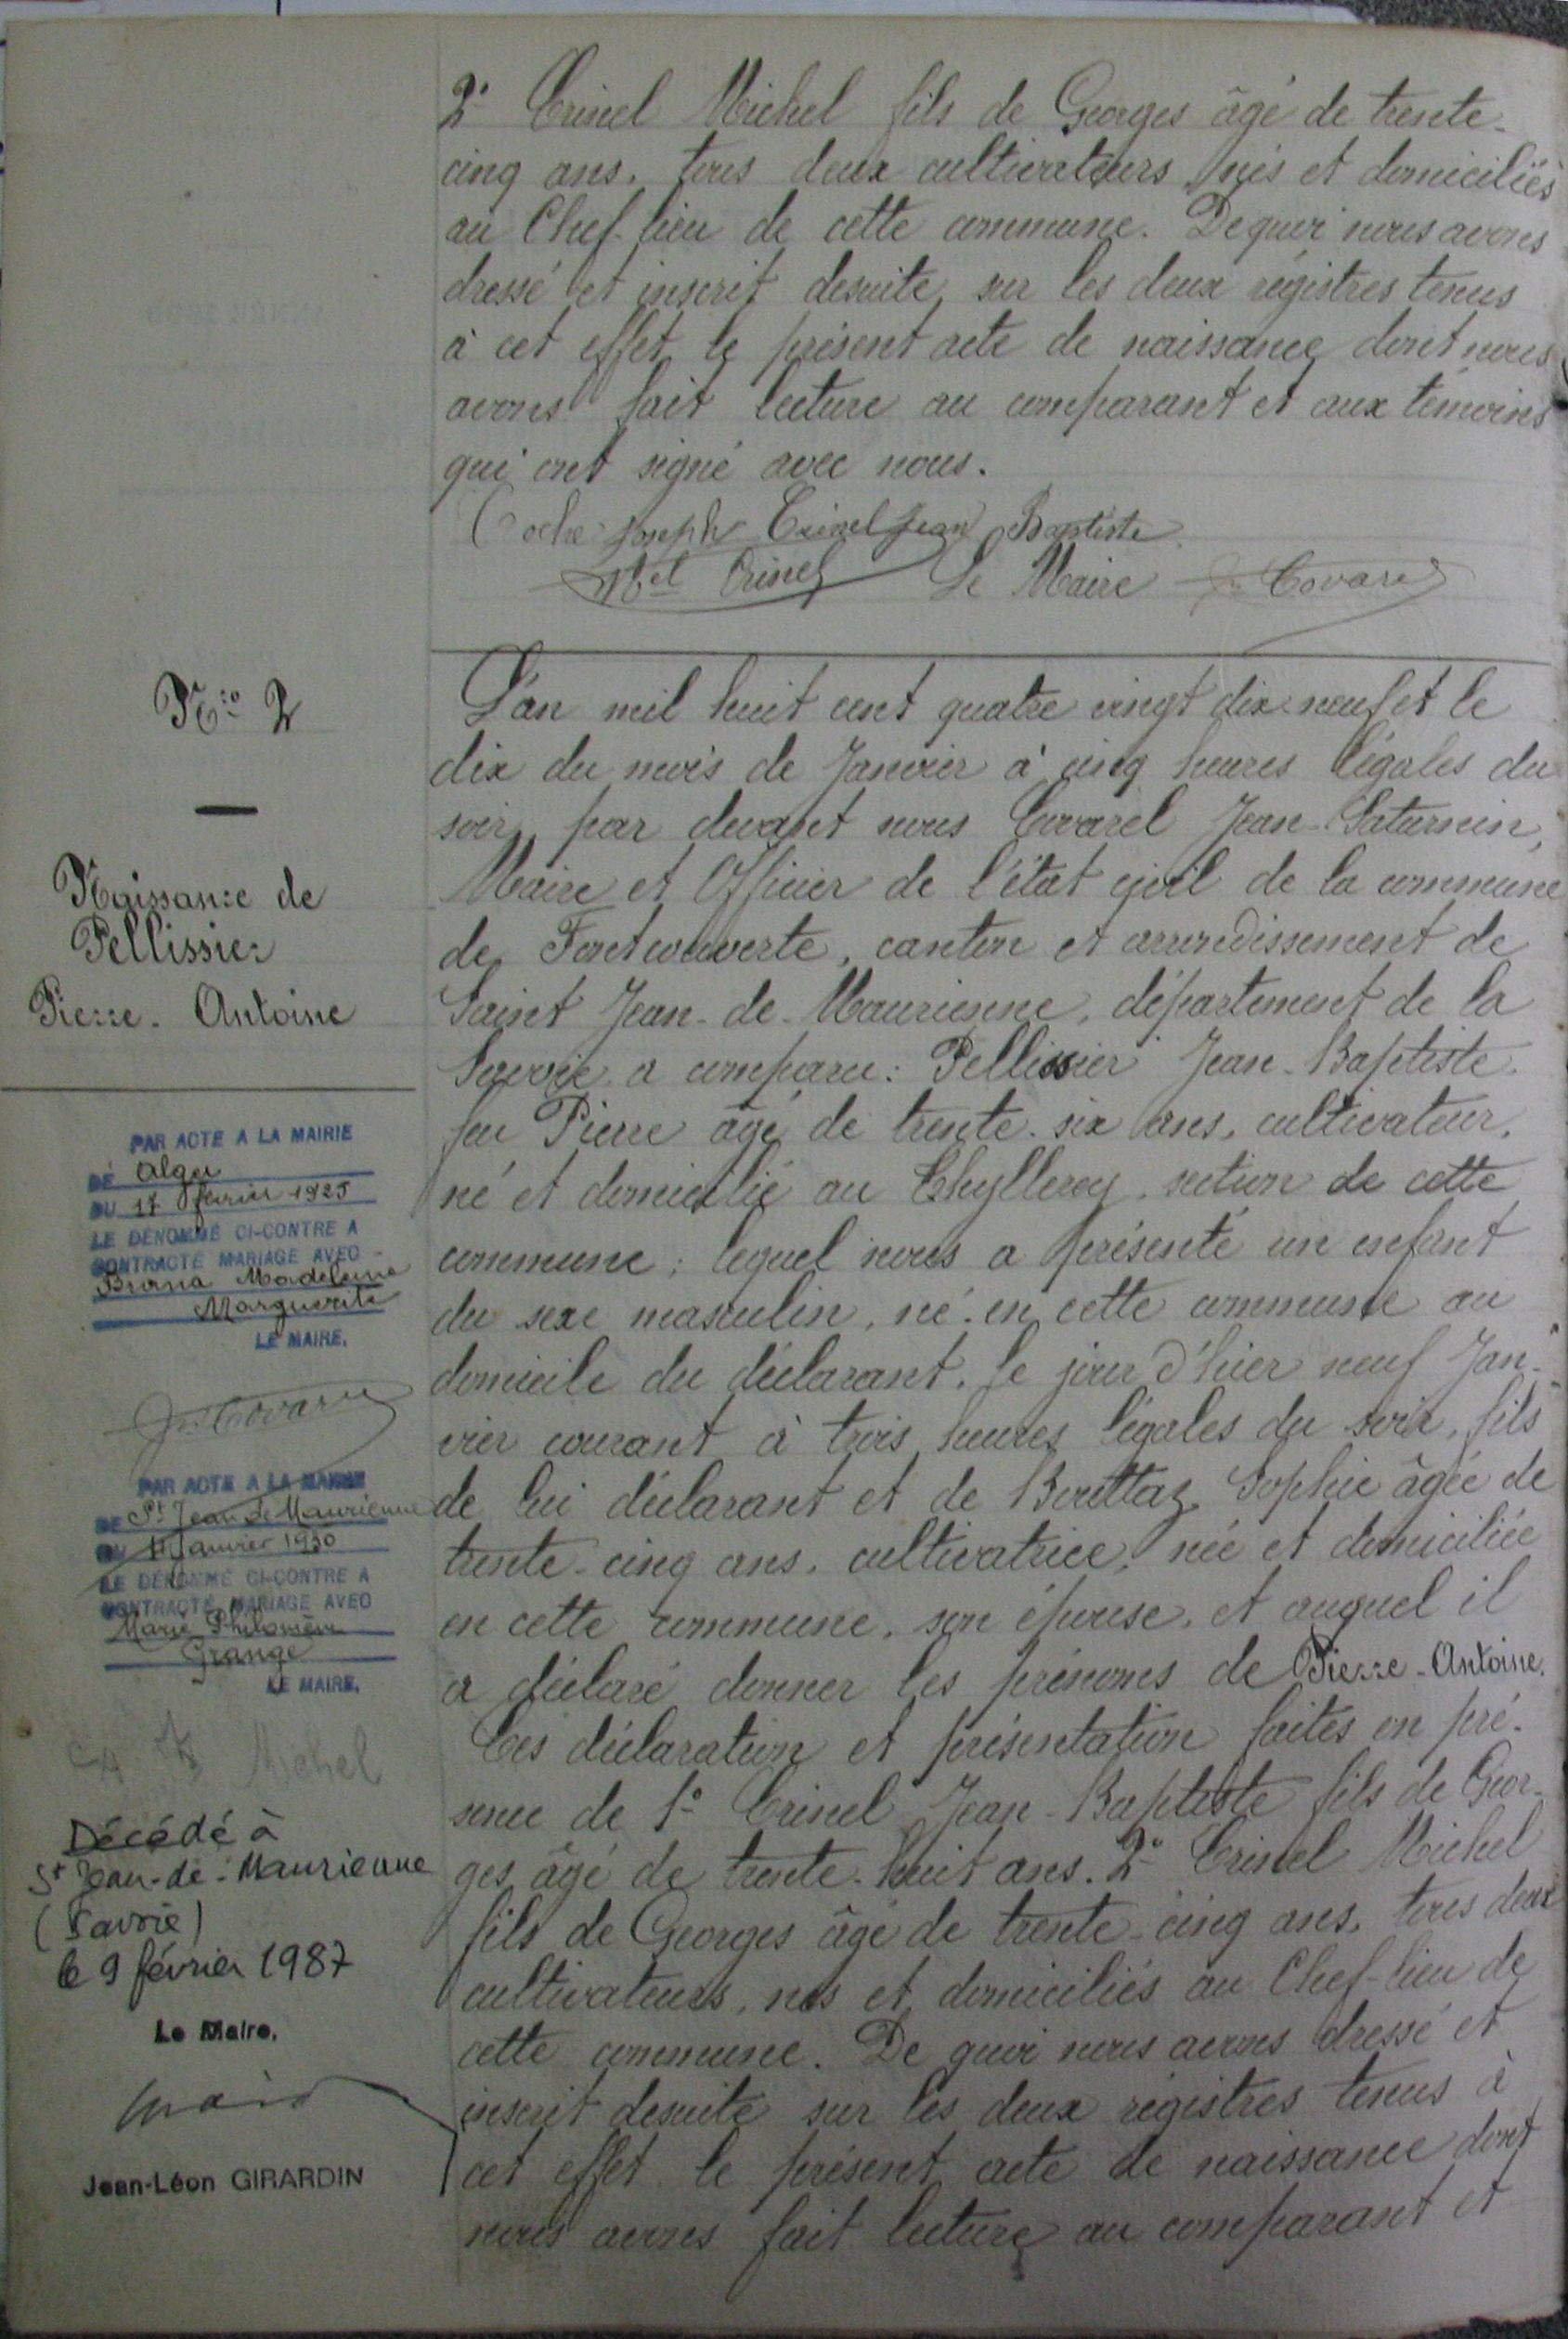 2° Crinel Michel fils de Georges âgé de trente-
cinq ans. tous deux cultivateurs nés et domiciliés
au Chef-lieu de cette commune. De quoi nous avons
dressé et inscrit desuite sur les deux régistres tenus
à cet effet le présent acte de naissance dont nous
avons fait lecture au comparant et aux témoins
qui ont signé avec nous.
Coche Joseph Crinel Jean Baptiste
Mel Crinel Le Maire Covarel
Nro 2
Naissance de
Pellissier
Pierre-Antoine
L'an mil huit cent quatre vingt dix-neuf et le
dix du mois de Janvier à cinq heures légales du
soir, par devant nous Covarel Jean-Saturnin,
Maire et Officier de l'état civil de la commune
de Fontcouverte, canton et arrondissement de
Saint Jean-de-Maurienne, département de la
Savoie a comparu: Pellissier Jean-Baptiste
feu Pierre âgé de trente-six ans, cultivateur,
né et domicilié au Chylleroy, section de cette
commune; lequel nous a présenté un enfant
du sexe masculin, né en cette commune au
domicile du déclarant, le jour d'hier neuf Jan-
vier courant à trois heures légales du soir, fils
de lui déclarant et de Bouttaz Sophie âgée de
trente-cinq ans, cultivatrice, née et domiciliée
en cette commune, son épouse, et auquel il
a déclaré donner les prénoms de Pierre-Antoine.
Ces déclaration et présentation faites en pré-
sence de 1° Crinel Jean-Baptiste fils de Geor-
ges âgé de trente-huit ans. 2° Crinel Michel
fils de Georges âgé de trente-cinq ans, tous deux
cultivateurs, nés et domiciliés au Chef-lieu de
cette commune. De quoi nous avons dressé et
inscrit desuite sur les deux régistres tenus à
cet effet le présent acte de naissance dont
nous avons fait lecture au comparant et
PAR ACTE A LA MAIRIE
DE Alger
DU 17 février 1925
LE DÉNOMMÉ CI-CONTRE A
CONTRACTÉ MARIAGE AVEC
Madeleine
Marguerite
LE MAIRE.
Covarel
PAR ACTE A LA MAIRIE
DE St Jean de Maurienne
DU 11 Janvier 1930
LE DÉNOMMÉ CI-CONTRE A
CONTRACTÉ MARIAGE AVEC
Marie Philomène
Grange
LE MAIRE.
Michel
Décédé à
St Jean-de-Maurienne
(Savoie)
le 9 février 1987
Le Maire,
Jean-Léon GIRARDIN